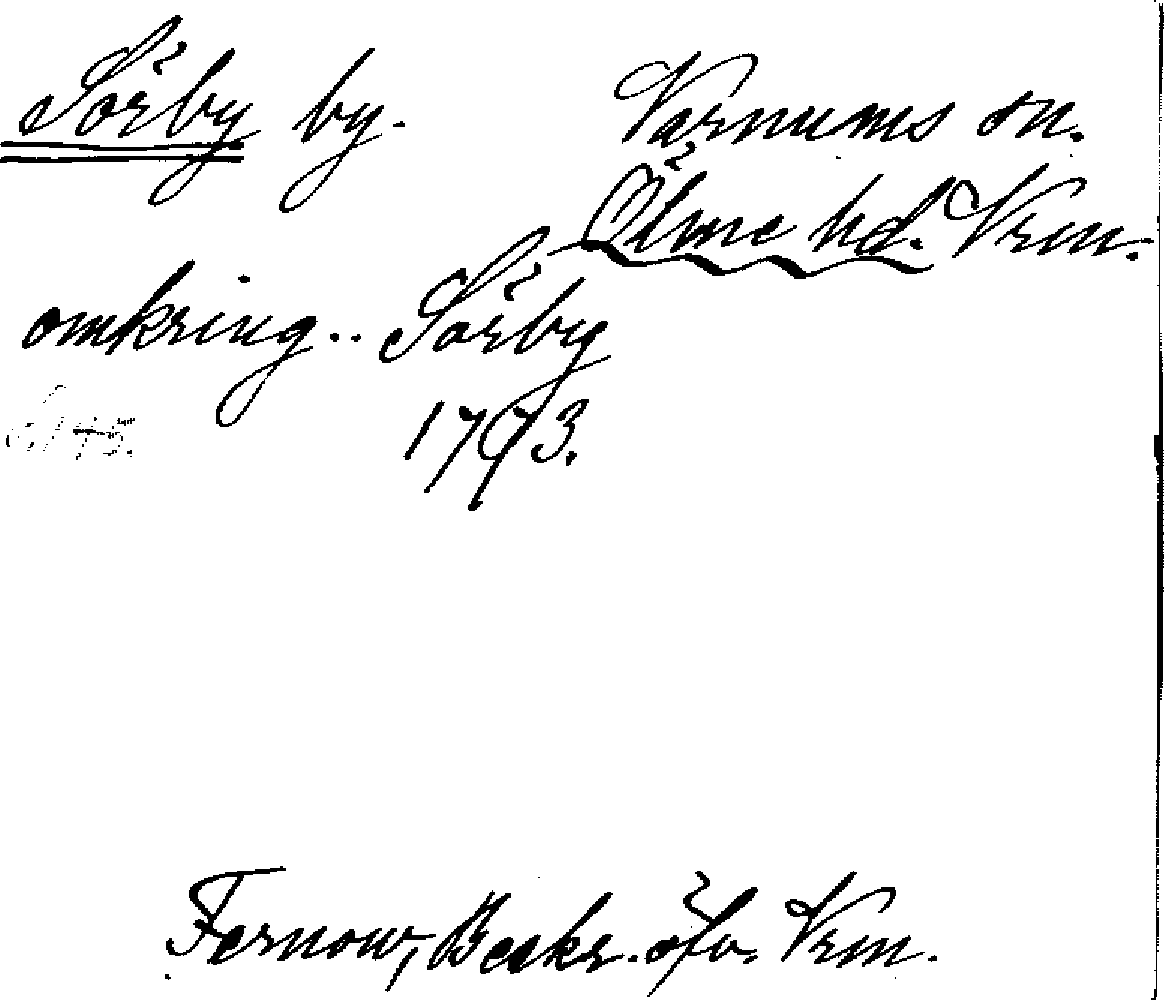 Sörby by. Varnums sn.
Ölme hd. Vrm.
omkring.. Sörby
1773.
Fernow, Beskr. öfv. Vrm.